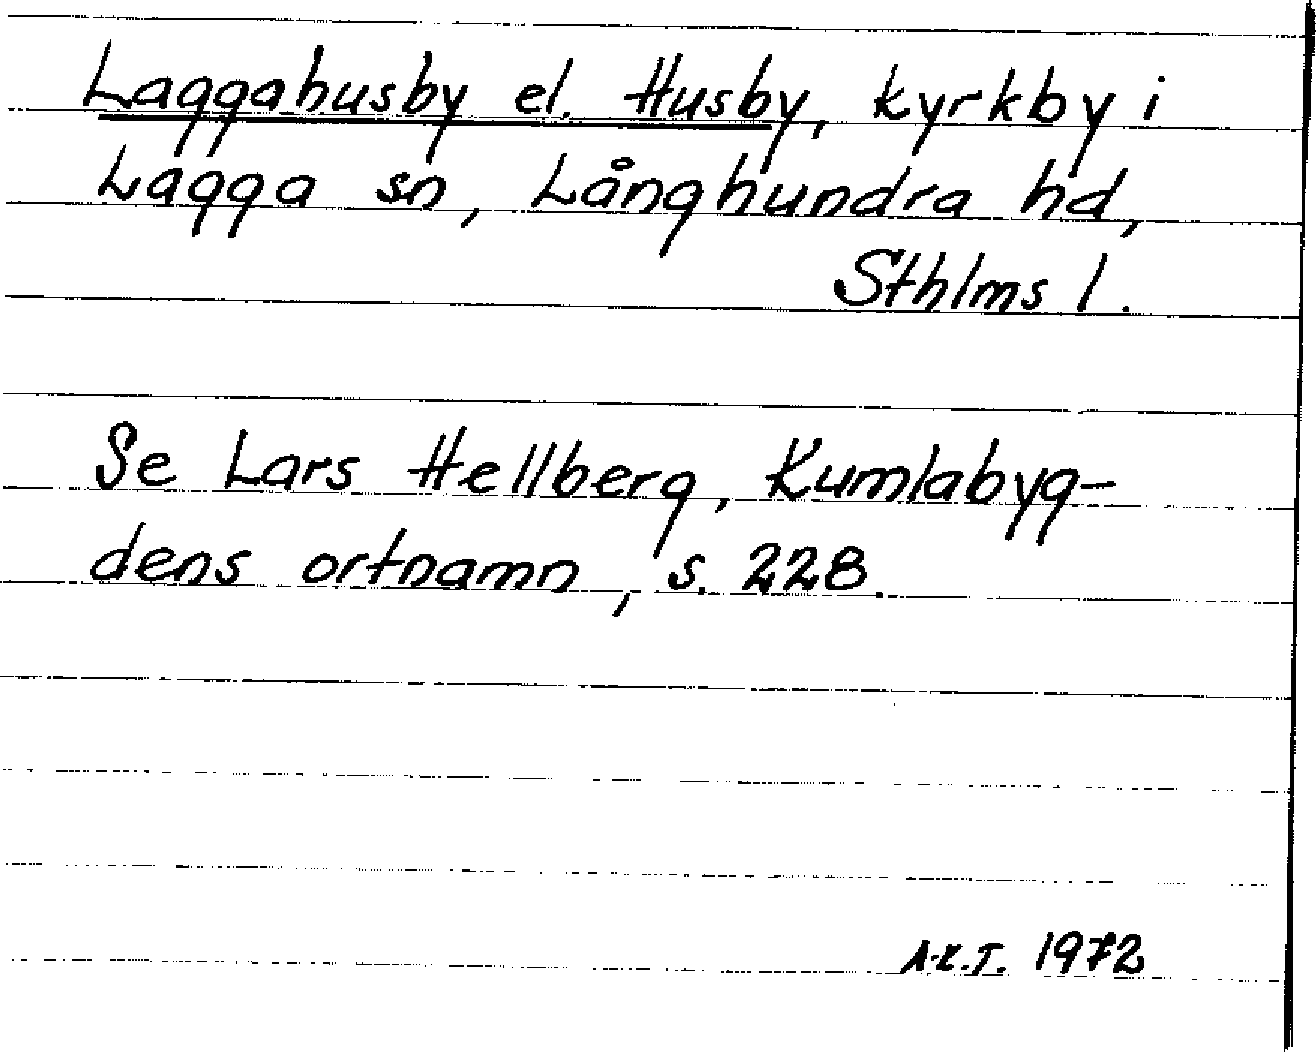 Laggahusby el. Husby, kyrkby i
Lagga sn, Långhundra hd,
Sthlms l.
Se Lars Hellberg, Kumlabyg-
dens ortnamn, s. 228.
A-K.T. 1972